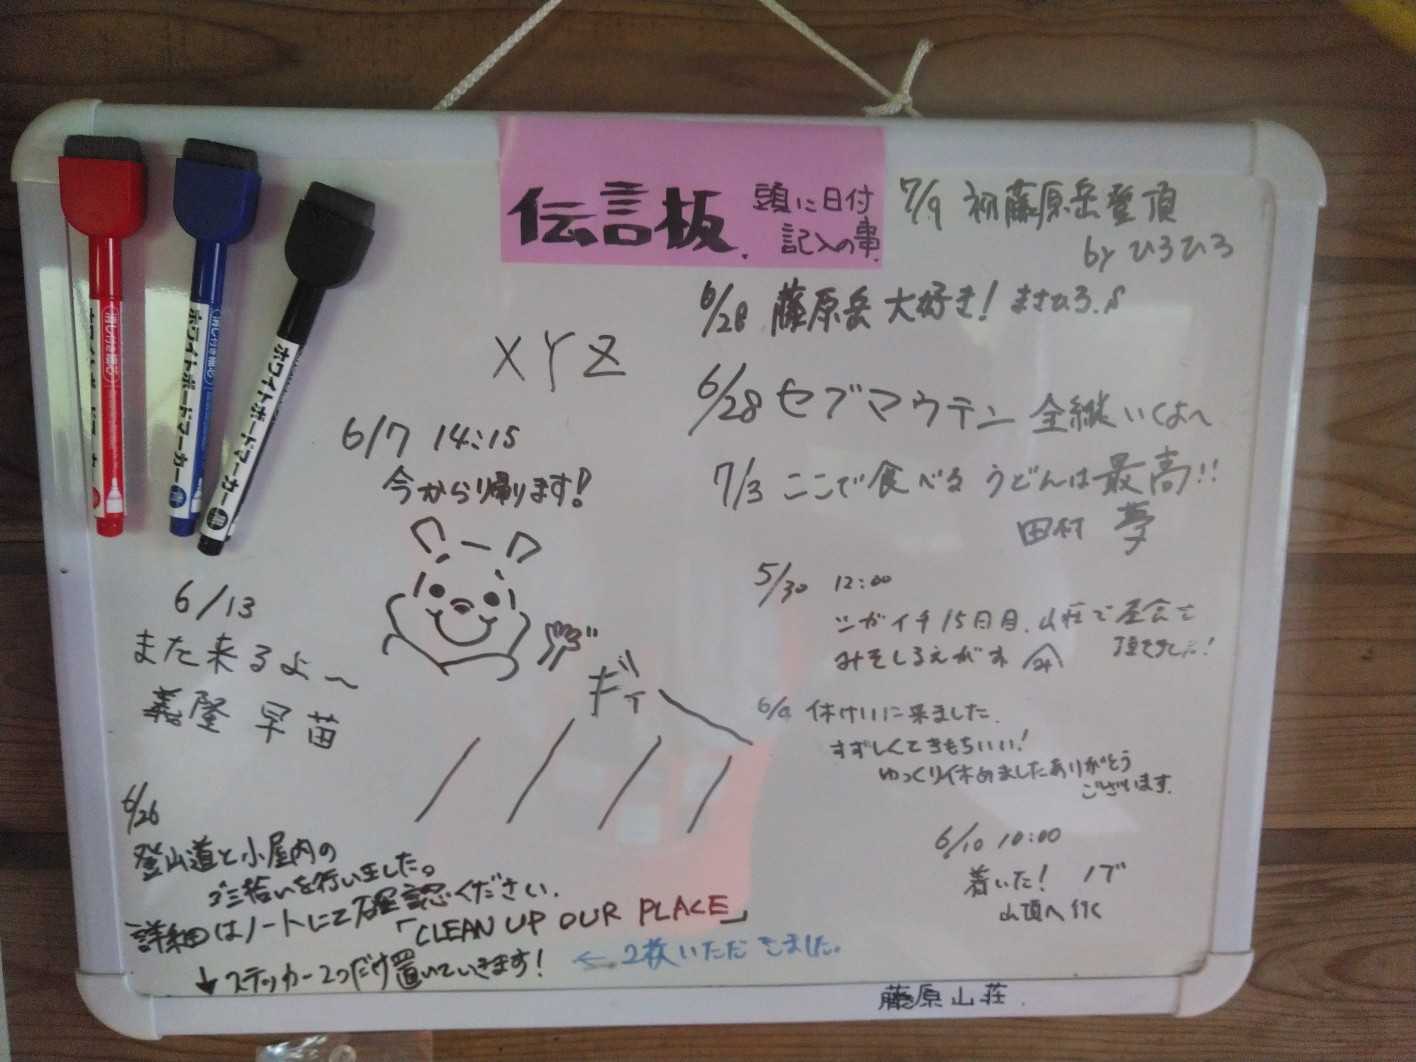 伝言板.
頭に日付
記入の事.
7/9 初藤原岳登頂
by ひろひろ
6/28 藤原岳 大好き! まさひろ.
XYZ
6/28 セブンマウテン 全縦いくよ〜
6/7 14:15
今から帰ります!
7/3 ここで食べる うどんは最高!!
田村 夢
5/30 12:00
ツガイチ15日目. 山荘で昼食を
頂きました!
みそしる
6/13
また来るよ〜
義隆 早苗
ギィー
6/9 休けいに来ました.
すずしくてきもちいい!
ゆっくり休めましたありがとう
ございます.
6/10 10:00
着いた! ノブ
山頂へ行く
6/26
登山道と小屋内の
ゴミ拾いを行いました。
詳細はノートにて確認ください.
「CLEAN UP OUR PLACE」
↓ステッカー2つだけ置いていきます!
← 2枚いただきました.
藤原山荘.
消し付き極細
ホワイトボードマーカー
ホワイトボードマーカー
黒